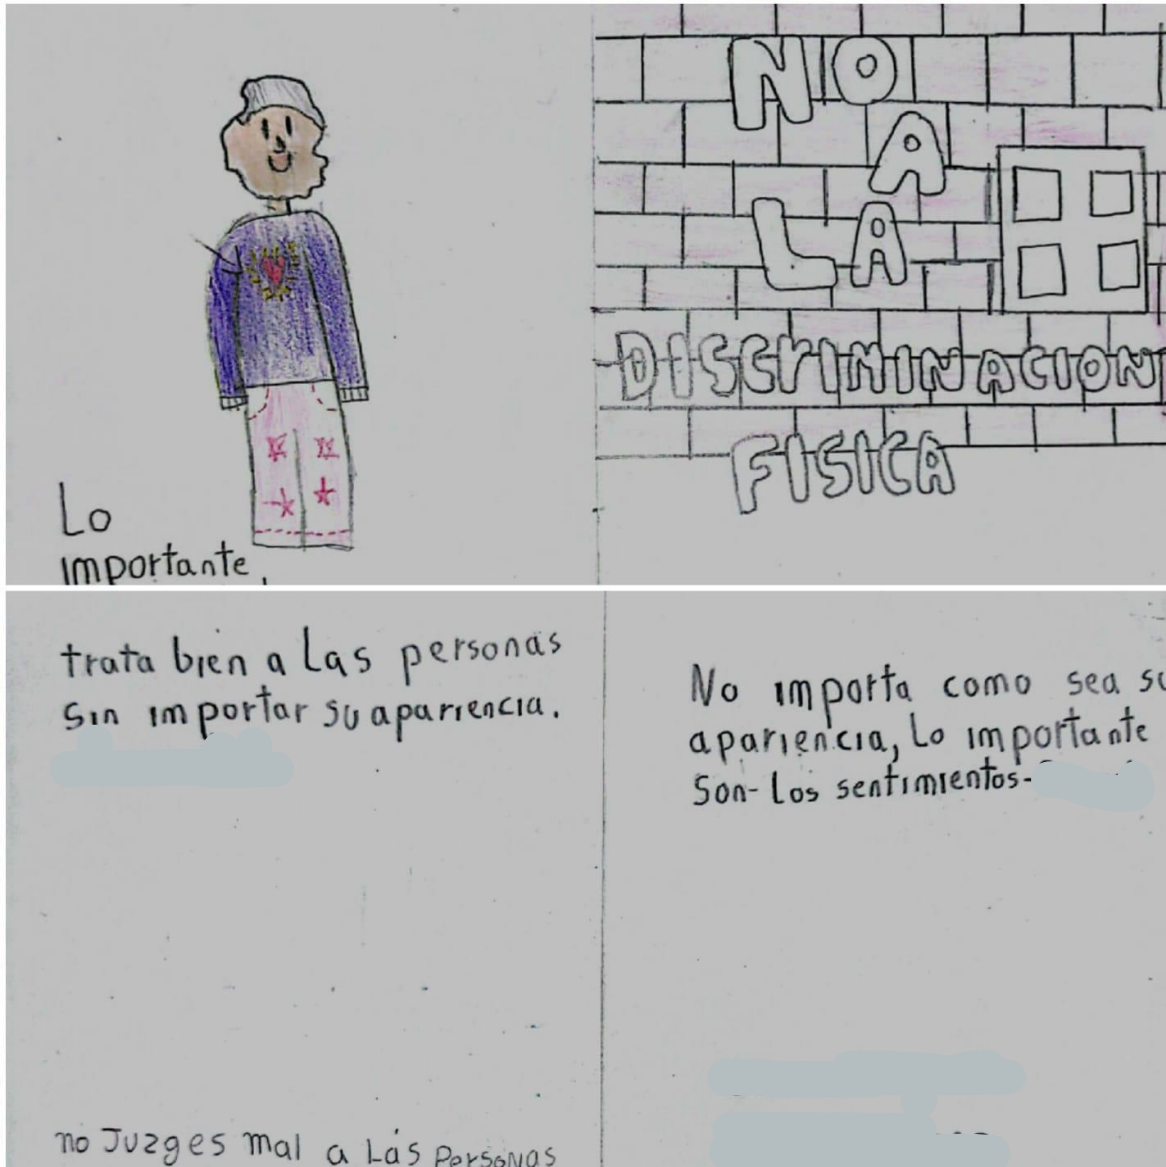 Lo
importante,
NO
A
LA
DISCrIMINACION
FISICA
trata bien a Las personas
sin importar su apariencia.
No importa como sea su
apariencia, Lo importante
son- Los sentimientos-
no Juzges mal a Lás Personas